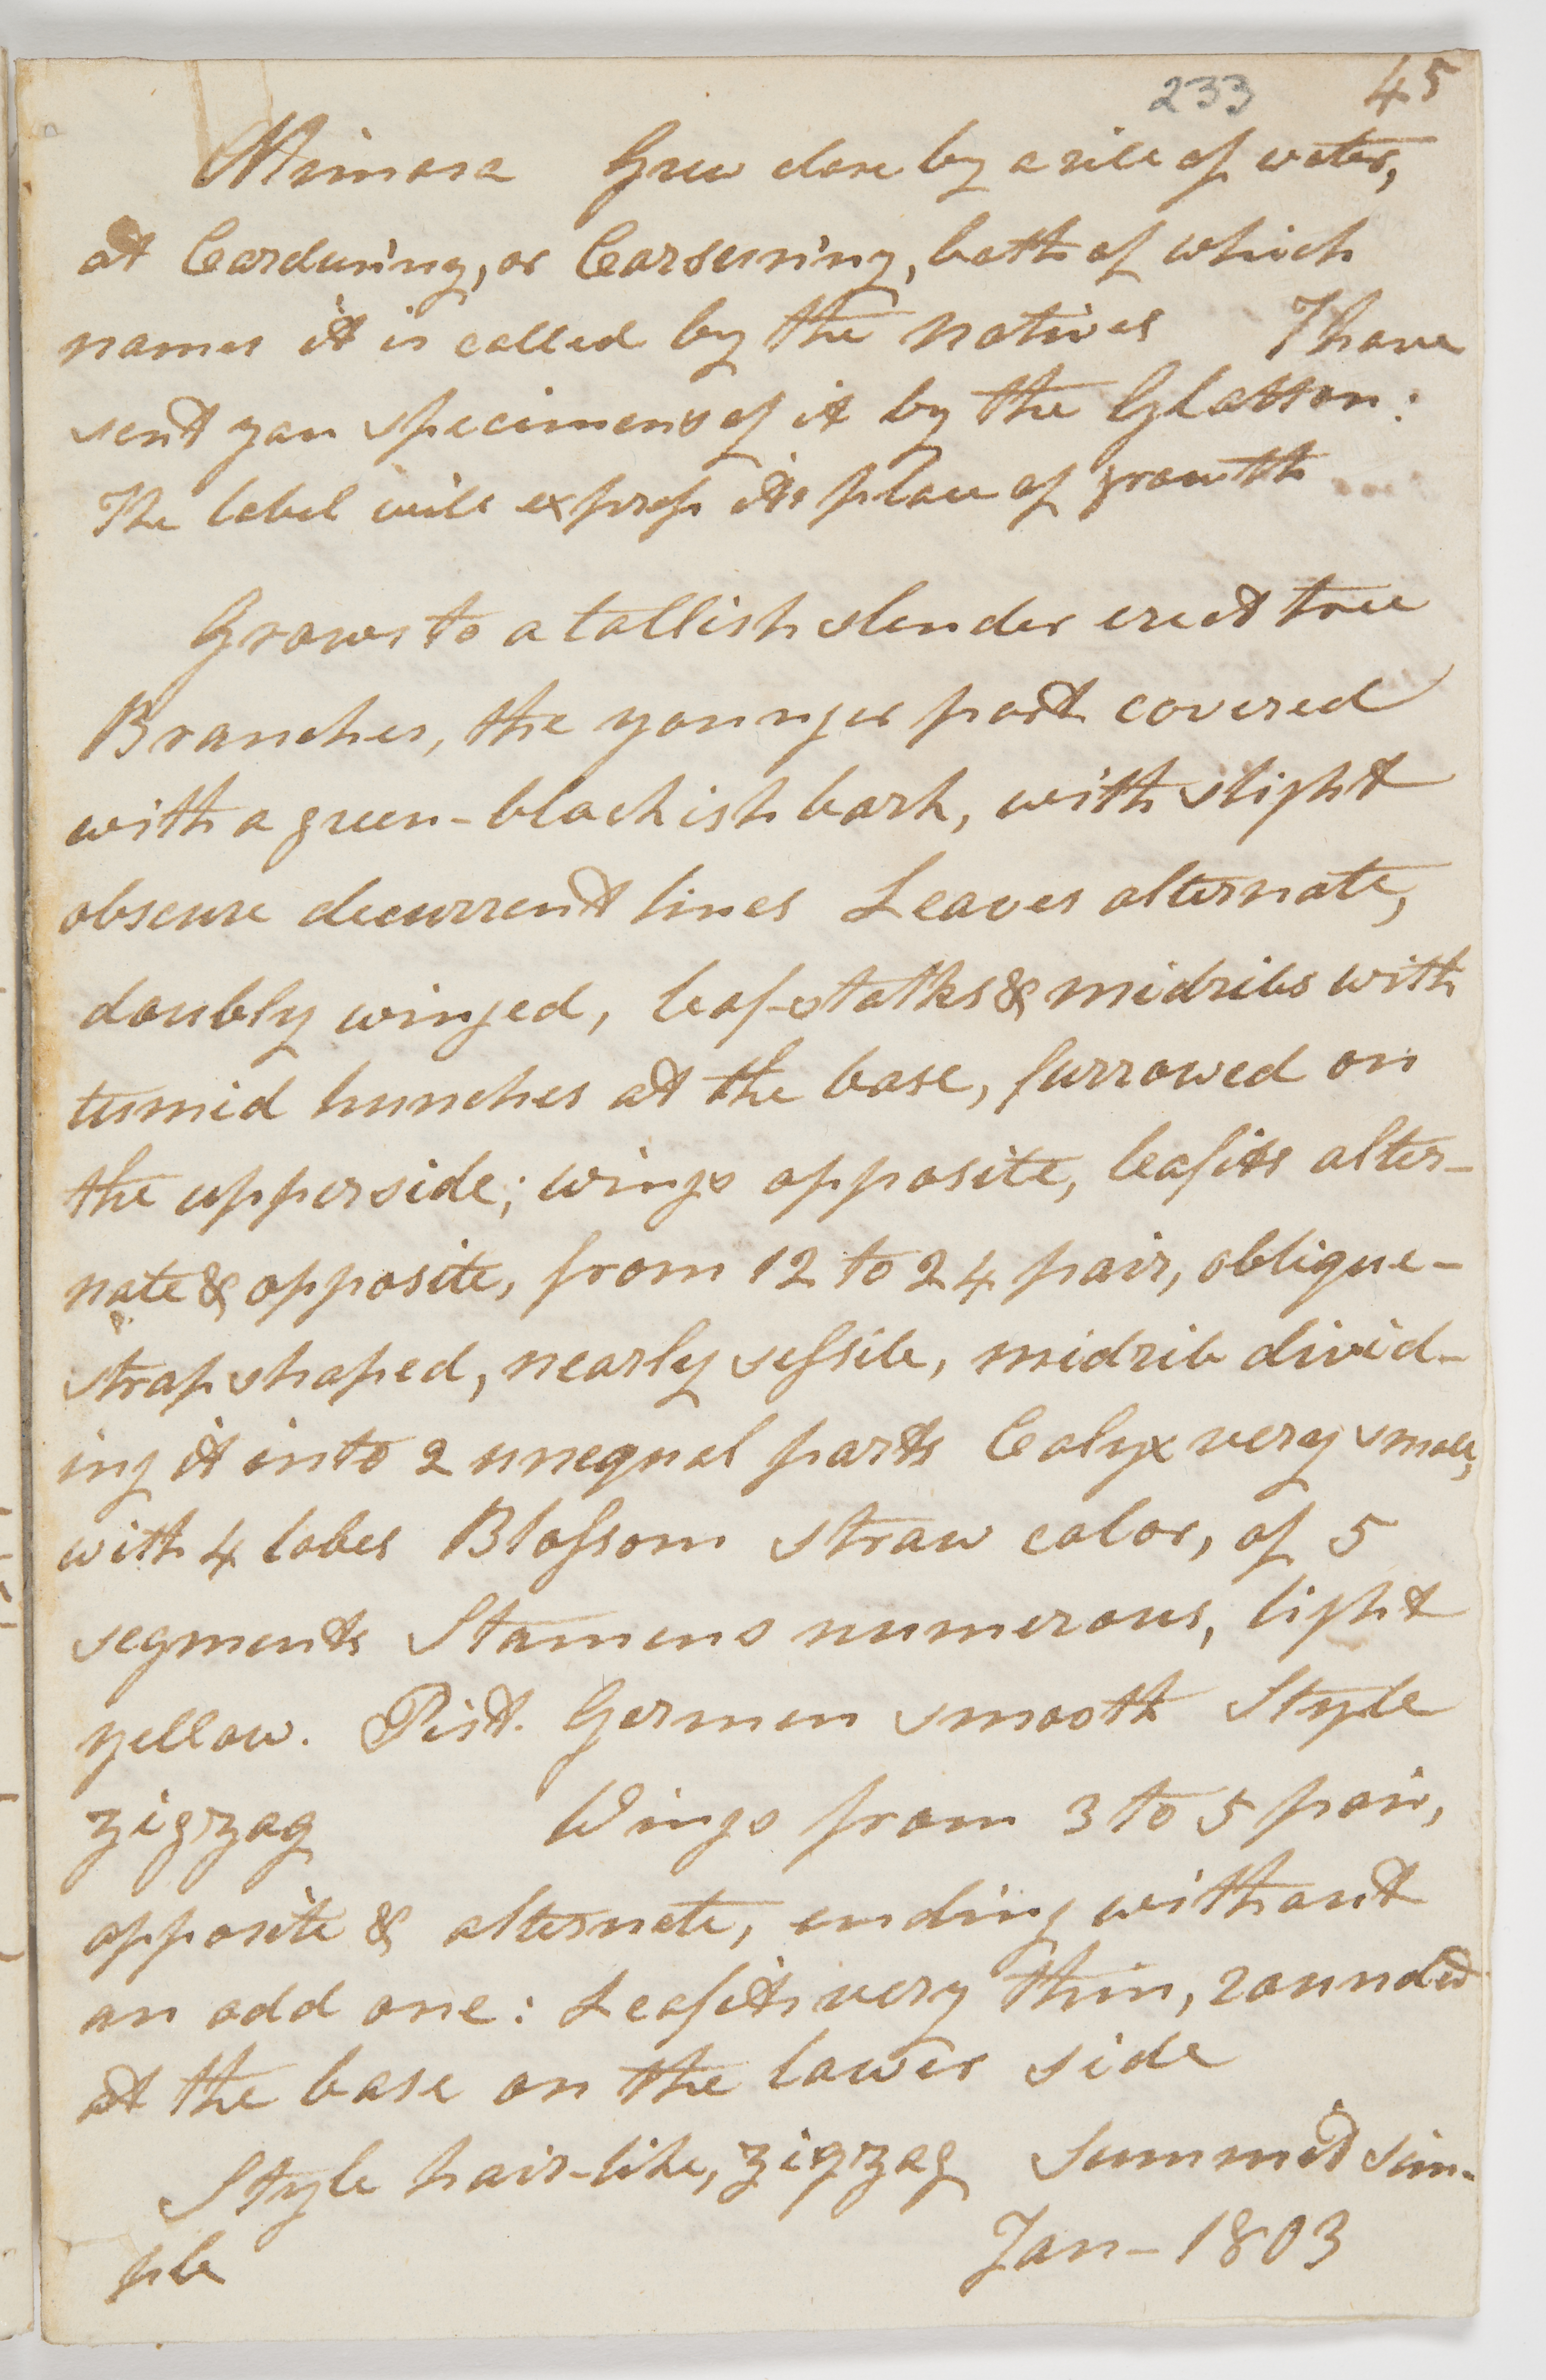 233 45
Mimosa Grew close by a rill of water,
at Carduning, or Carsuning, both of which
names it is called by the natives I have
sent you specimens of it by the Glatton:
The label will express its place of growth
Grows to a tallish slender erect tree
Branches, the younger part covered
with a green-blackish bark, with slight
obscure decurrent lines Leaves alternate,
doubly winged, leaf-stalks & midribs with
tumid hunches at the base, furrowed on
the upperside; wings opposite, leafits alter-
nate & opposite, from 12 to 24 pair, oblique-
strap shaped, nearly sessile, midrib divid-
ing it into 2 unequal parts Calyx very small,
with 4 lobes Blossom straw color, of 5
segments Stamens numerous, light
yellow. Pist. Germen smooth Style
zigzag Wings from 3 to 5 pair,
opposite & alternate, ending without
an odd one: Leafits very thin, rounded
at the base on the lower side
Style hair-like, zigzag Summit sim-
ple Jan - 1803